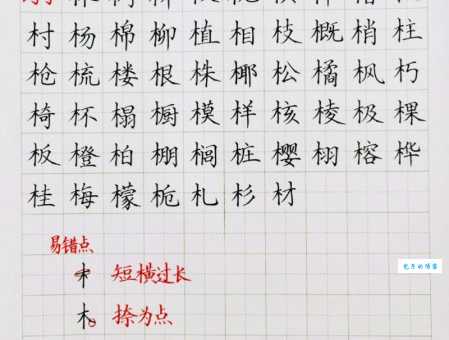 村杨棉柳植相枝概梢柱
枪梳楼根株椰松橘枫朽
椅杯榻橱模样核棱极棵
板橙柏棚桐桩樱栩榕桦
桂梅檬栀札杉材
易错点
木 短横过长
木 捺为点